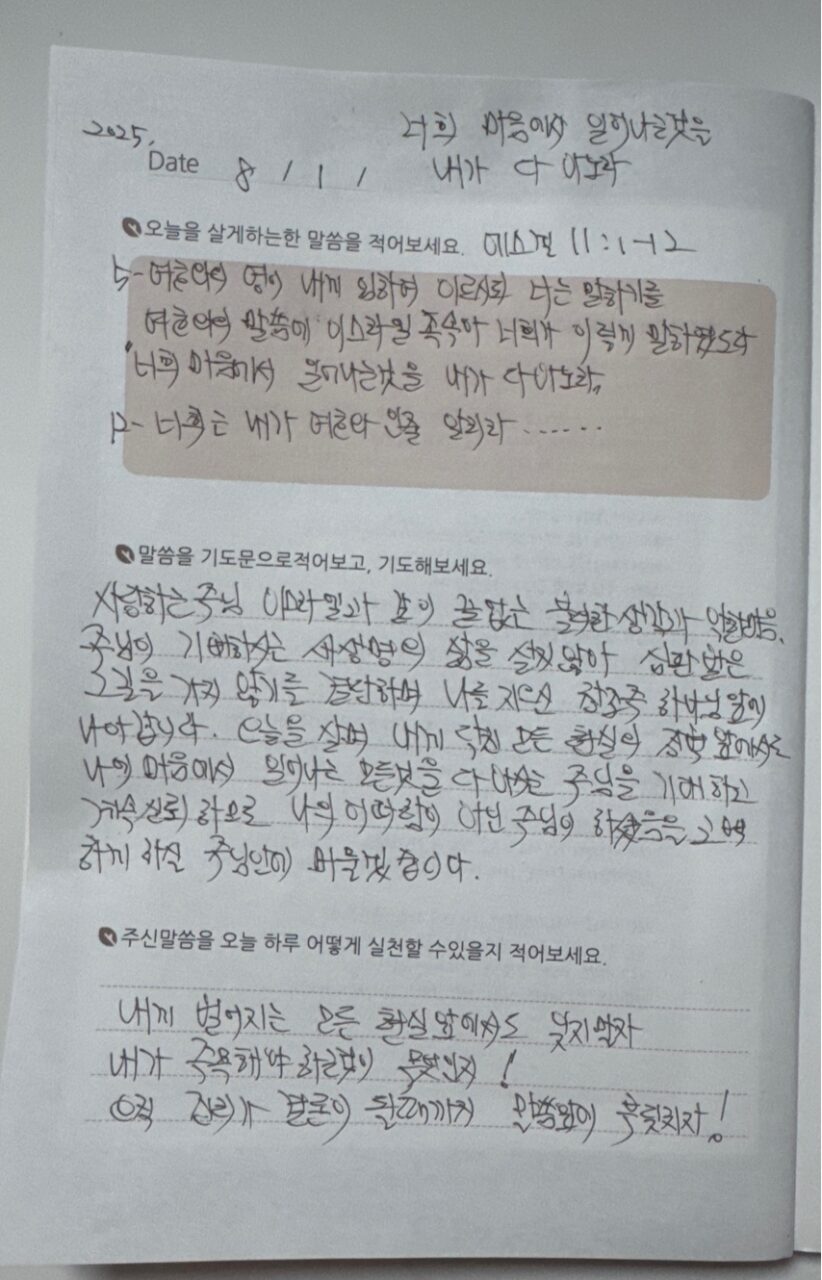 2025.
너희 마음에서 일어나는것을
Date 8 / 1 /
내가 다 아노라
오늘을 살게하는한 말씀을 적어보세요. 에스겔 11:1-12
5- 여호와의 영이 내게 임하여 이르시되 너는 말하기를
여호와의 말씀에 이스라엘 족속아 너희가 이렇게 말하였도다
너희 마음에서 일어나는것을 내가 다 아노라,,
12- 너희는 내가 여호와 인줄 알리라 ......
말씀을 기도문으로적어보고, 기도해보세요.
사랑하는 주님 이스라엘과 같이 끝없는 불의한 생각과 악한마음.
주님이 기뻐하시는 새생명의 삶을 살지않아 심판받은
그길을 가지 않기를 결단하며 나를 지으신 창조주 하나님 앞에
나아갑니다. 오늘을 살며 내게 닥친 모든 현실의 장벽 앞에서도
나의 마음에서 일어나는 모든것을 다 아시는 주님을 기대하고
계속 신뢰 하므로 나의 어떠함이 아닌 주님이 하셨음을 고백
하게 하실 주님안에 머물겠습니다.
주신말씀을 오늘 하루 어떻게 실천할 수있을지 적어보세요.
내게 벌어지는 모든 현실앞에서도 잊지말자
내가 주목해야 하는것이 무엇인지 !
오직 진리가 결론이 될때까지 말씀앞에 부딪치자 !